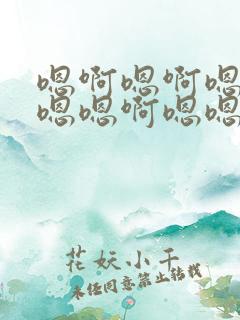 嗯啊嗯啊嗯
嗯嗯啊嗯嗯
花妖小千
未经同意禁止转载